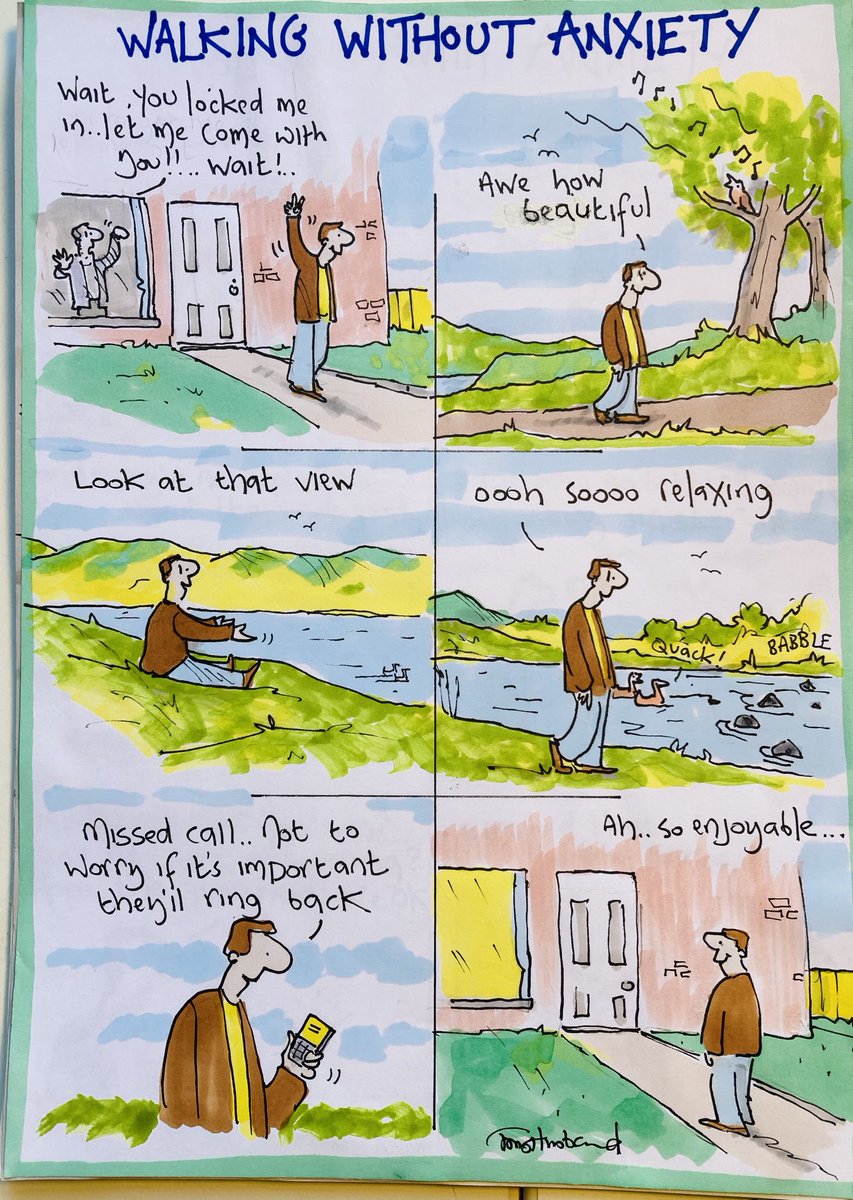 WALKING WITHOUT ANXIETY
Wait, you locked me
in..let me come with
you!!... wait!..
Awe how
beautiful
Look at that view
oooh soooo relaxing
Quack!
BABBLE
Missed call.. Not to
worry if it's important
they'll ring back
Ah.. so enjoyable...
Tony Husband